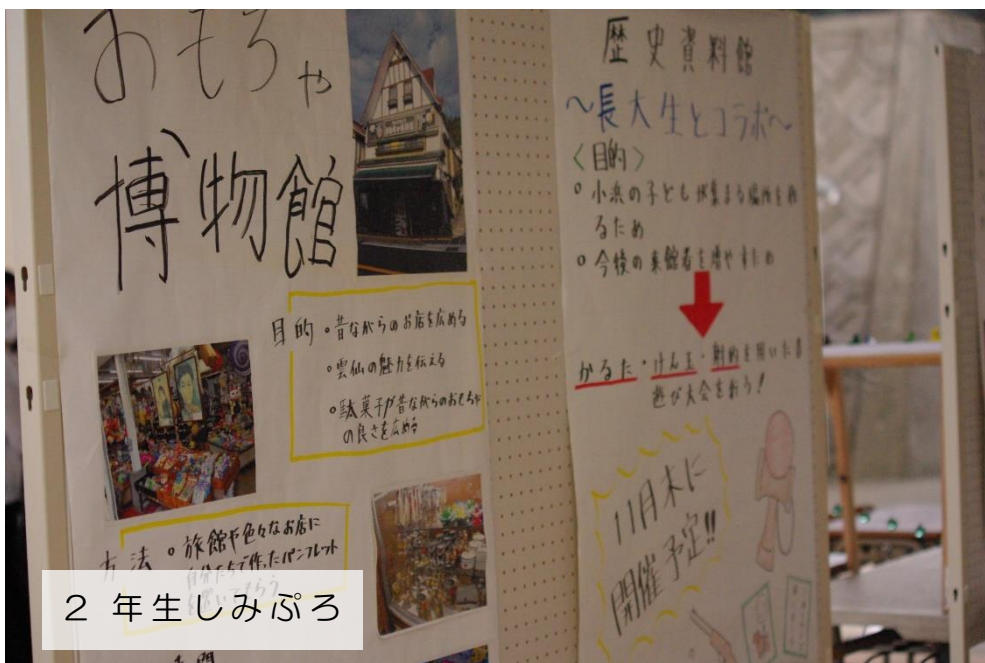 おもちゃ
博物館
目的
・昔ながらのお店を広める
・雲仙の魅力を伝える
・駄菓子や昔ながらのおもちゃ
の良さを広める
方法
・旅館や色々なお店に
自分たちで作ったパンフレット
歴史資料館
～長大生とコラボ～
〈目的〉
・小浜の子どもが集まる場所を作
るため
・今後の来館者を増やすため
かるた・けん玉・射的を用いた昔
遊び大会を行う！
11月末に
開催予定!!
2 年生しみぷろ